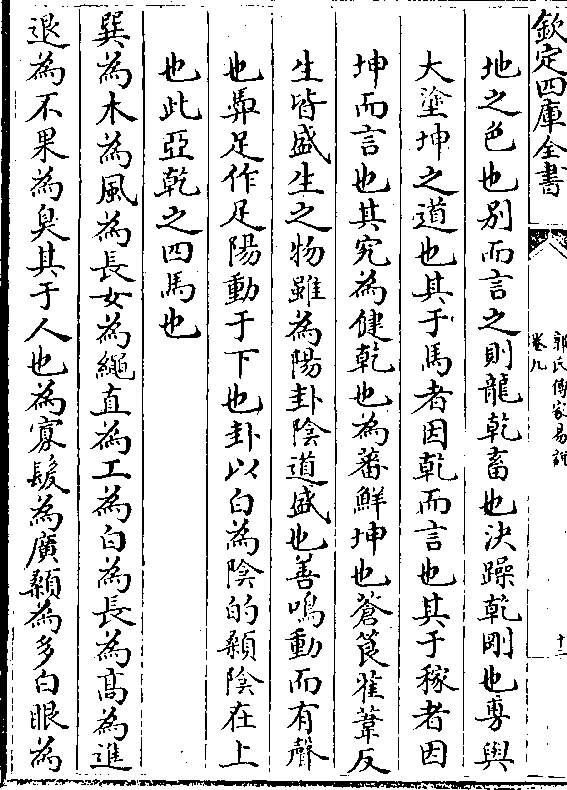 欽定四庫全書
郭氏傳家易說
卷九
十
地之色也別而言之則龍乾畜也決躁乾剛也旉與
大塗坤之道也其于馬者因乾而言也其于稼者因
坤而言也其究為健乾也為蕃鮮坤也蒼筤萑葦反
生皆盛生之物雖為陽卦陰道盛也善鳴動而有聲
也馵足作足陽動于下也卦以白為陰的顙陰在上
也此亞乾之四馬也
巽為木為風為長女為繩直為工為白為長為髙為進
退為不果為臭其于人也為寡髮為廣顙為多白眼為